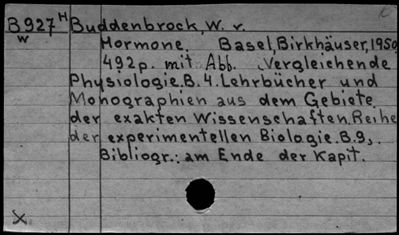 B927 H Buddenbrock, W. v.
w
Hormone. Basel, Birkhäuser, 1950
492p. mit Abb. (Vergleichende
Physiologie.B.4.Lehrbücher und
Monographien aus dem Gebiete
der exakten Wissenschaften.Reihe
der experimentellen Biologie.B.9).
Bibliogr.: am Ende der Kapit.
x